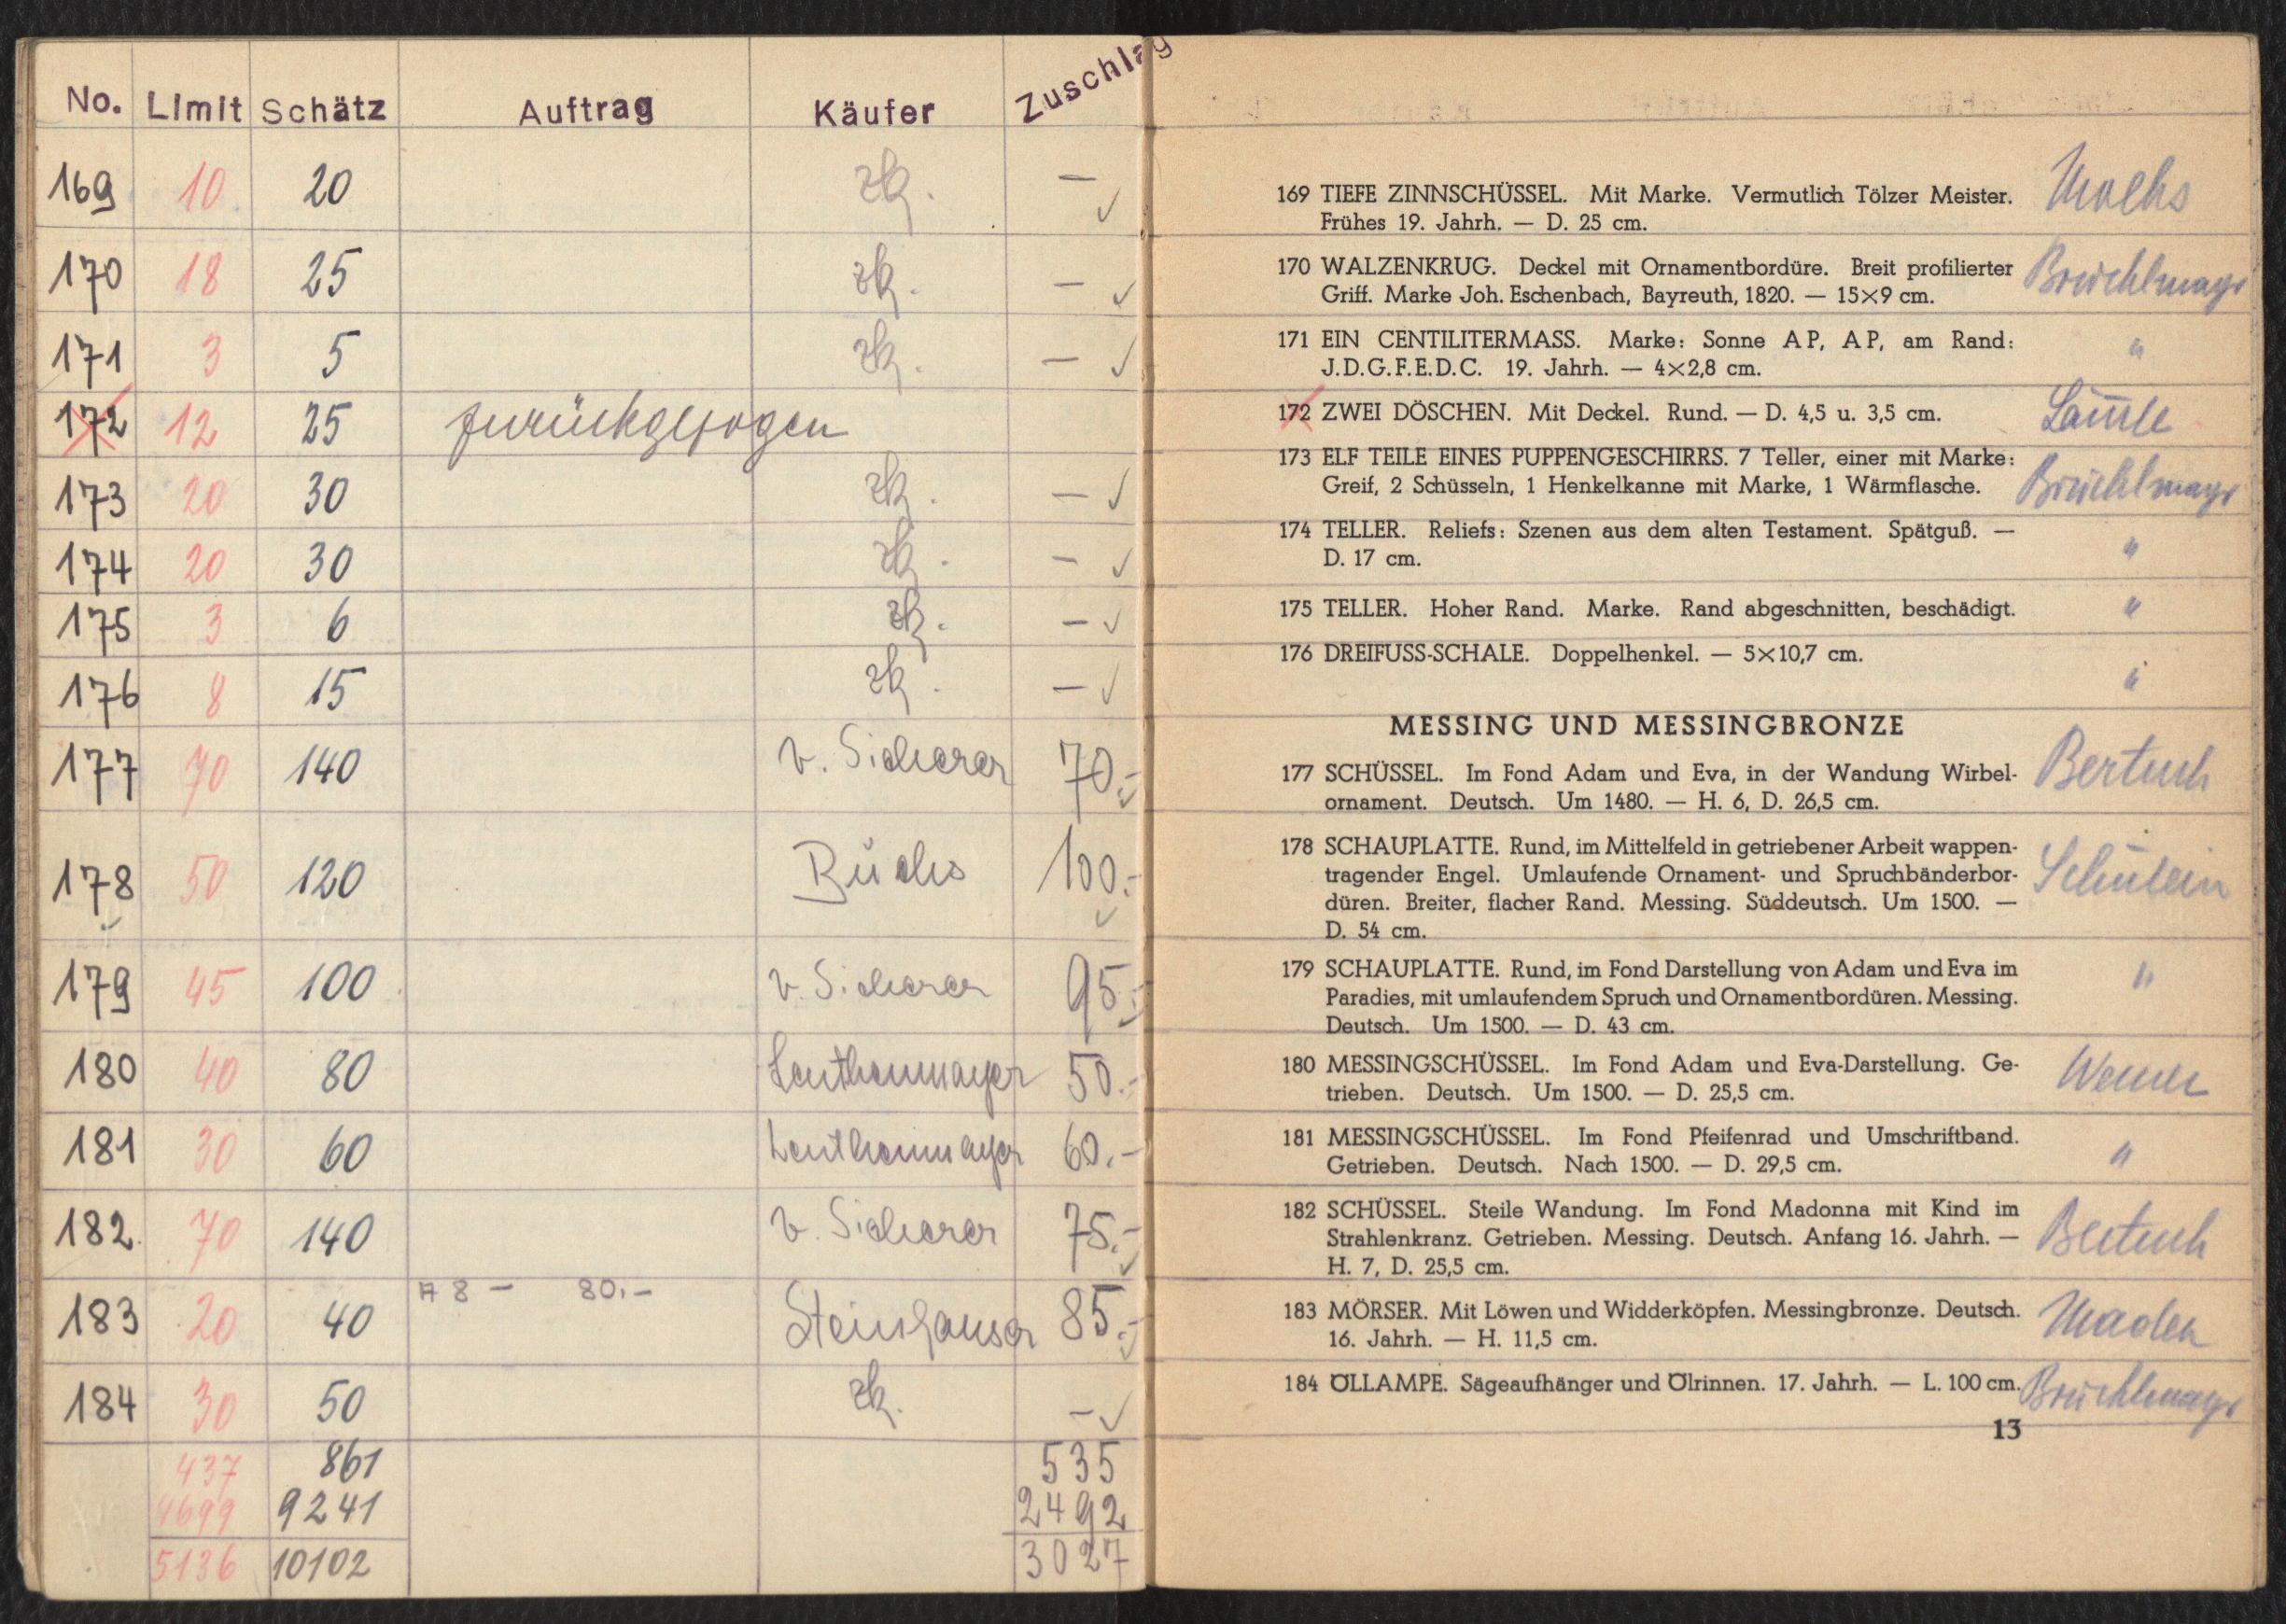 No. Limit Schätz Auftrag Käufer Zuschlag
169 10 20 zk. — ✓
170 18 25 zk. — ✓
171 3 5 zk. — ✓
172 12 25 zurückgezogen
173 20 30 zk. — ✓
174 20 30 zk. — ✓
175 3 6 zk. — ✓
176 8 15 zk. — ✓
177 70 140 v. Sicherer 70.- ✓
178 50 120 100.- ✓
179 45 100 v. Sicherer 95.- ✓
180 40 80 Leuthenmayer 50.-
181 30 60 Leuthenmayer 60.-
182. 70 140 v. Sicherer 75.- ✓
183 20 40 8 — 80.— Steinhauser 85.- ✓
184 30 50 zk. — ✓
437 861 535
4699 9241 2492
5136 10102 3027
169 TIEFE ZINNSCHÜSSEL. Mit Marke. Vermutlich Tölzer Meister.
Frühes 19. Jahrh. — D. 25 cm.
170 WALZENKRUG. Deckel mit Ornamentbordüre. Breit profilierter Brüchlmayr
Griff. Marke Joh. Eschenbach, Bayreuth, 1820. — 15×9 cm.
171 EIN CENTILITERMASS. Marke: Sonne AP, AP, am Rand: "
J.D.G.F.E.D.C. 19. Jahrh. — 4×2,8 cm.
172 ZWEI DÖSCHEN. Mit Deckel. Rund. — D. 4,5 u. 3,5 cm.
173 ELF TEILE EINES PUPPENGESCHIRRS. 7 Teller, einer mit Marke: Brüchlmayr
Greif, 2 Schüsseln, 1 Henkelkanne mit Marke, 1 Wärmflasche.
174 TELLER. Reliefs: Szenen aus dem alten Testament. Spätguß. — "
D. 17 cm.
175 TELLER. Hoher Rand. Marke. Rand abgeschnitten, beschädigt. "
176 DREIFUSS-SCHALE. Doppelhenkel. — 5×10,7 cm. "
MESSING UND MESSINGBRONZE
177 SCHÜSSEL. Im Fond Adam und Eva, in der Wandung Wirbel- Bertuch
ornament. Deutsch. Um 1480. — H. 6, D. 26,5 cm.
178 SCHAUPLATTE. Rund, im Mittelfeld in getriebener Arbeit wappen- Schülein
tragender Engel. Umlaufende Ornament- und Spruchbänderbor-
düren. Breiter, flacher Rand. Messing. Süddeutsch. Um 1500. —
D. 54 cm.
179 SCHAUPLATTE. Rund, im Fond Darstellung von Adam und Eva im "
Paradies, mit umlaufendem Spruch und Ornamentbordüren. Messing.
Deutsch. Um 1500. — D. 43 cm.
180 MESSINGSCHÜSSEL. Im Fond Adam und Eva-Darstellung. Ge-
trieben. Deutsch. Um 1500. — D. 25,5 cm.
181 MESSINGSCHÜSSEL. Im Fond Pfeifenrad und Umschriftband. "
Getrieben. Deutsch. Nach 1500. — D. 29,5 cm.
182 SCHÜSSEL. Steile Wandung. Im Fond Madonna mit Kind im Bertuch
Strahlenkranz. Getrieben. Messing. Deutsch. Anfang 16. Jahrh. —
H. 7, D. 25,5 cm.
183 MÖRSER. Mit Löwen und Widderköpfen. Messingbronze. Deutsch.
16. Jahrh. — H. 11,5 cm.
184 ÖLLAMPE. Sägeaufhänger und Ölrinnen. 17. Jahrh. — L. 100 cm. Brüchlmayr
13